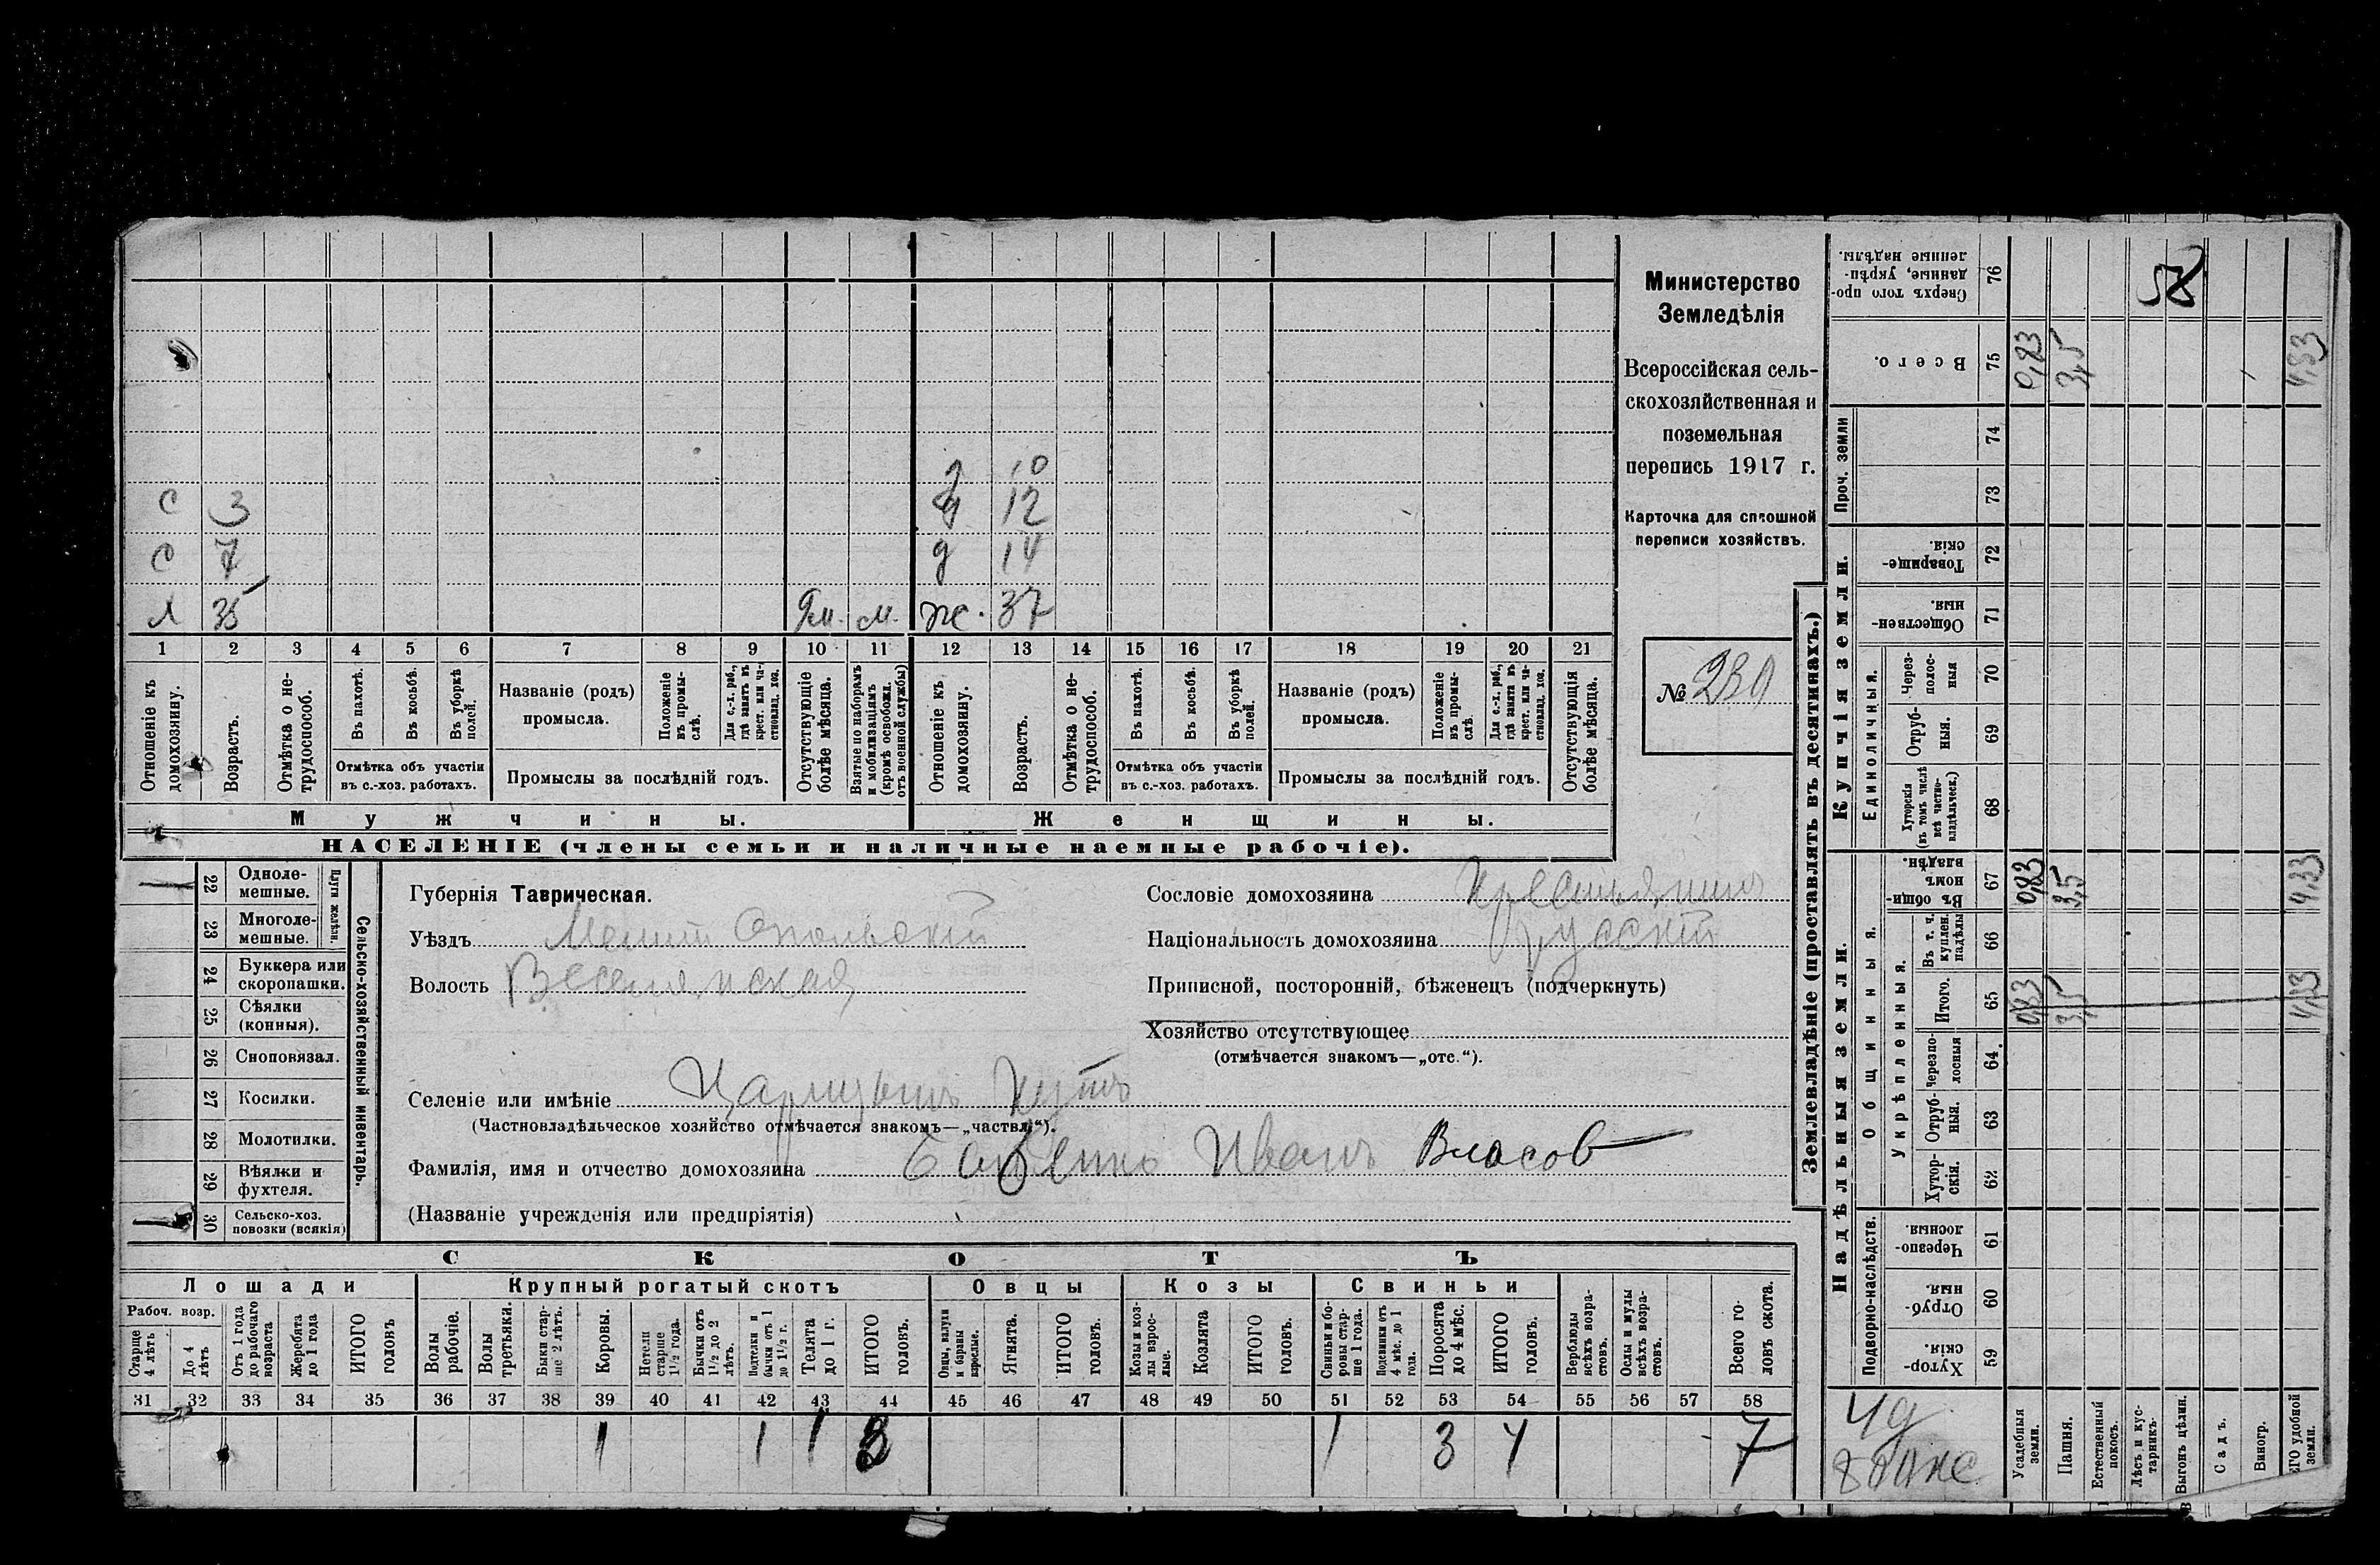 Министерство
Земледѣлія
Всероссійская сель-
скохозяйственная и
поземельная
перепись 1917 г.
Карточка для сплошной
переписи хозяйствъ.
№ 230
д 10
С 3 д 12
С 7 д 14
ж. 37
35 м.
1 2 3 4 5 6 7 8 9 10 11 12 13 14 15 16 17 18 19 20 21
Отношеніе къ домохозяину.
Возрастъ.
Отмѣтка о не-трудоспособ.
Въ пахотѣ.
Въ косьбѣ.
Въ уборкѣ полей.
Отмѣтка объ участіи
въ с.-хоз. работахъ.
Названіе (родъ)
промысла.
Положеніе въ промы-слѣ.
Для с.-х. раб., гдѣ занятъ въ крест. или ча-стновлад. хоз.
Промыслы за послѣдній годъ.
Отсутствующіе болѣе мѣсяца.
Взятые по наборамъ и мобилизаціямъ (кромѣ освобожд. отъ военной службы)
Отношеніе къ домохозяину.
Возрастъ.
Отмѣтка о не-трудоспособ.
Въ пахотѣ.
Въ косьбѣ.
Въ уборкѣ полей.
Отмѣтка объ участіи
въ с.-хоз. работахъ.
Названіе (родъ)
промысла.
Положеніе въ промы-слѣ.
Для с.-х. раб., гдѣ занята въ крест. или ча-стновлад. хоз.
Промыслы за послѣдній годъ.
Отсутствующія болѣе мѣсяца.
Мужчины.
Женщины.
НАСЕЛЕНІЕ (члены семьи и наличные наемные рабочіе).
22 Одноле-мешные.
23 Многоле-мешные.
Плуги желѣзн.
24 Буккера или скоропашки.
25 Сѣялки (конныя).
26 Сноповязал.
27 Косилки.
28 Молотилки.
29 Вѣялки и фухтеля.
30 Сельско-хоз. повозки (всякія)
Сельско-хозяйственный инвентарь.
Губернія Таврическая.
Уѣздъ Мелитопольскій
Волость Веселянская
Сословіе домохозяина Крестьянинъ
Національность домохозяина Русскій
Приписной, посторонній, бѣженецъ (подчеркнуть)
Хозяйство отсутствующее
(отмѣчается знакомъ—„отс.“).
Селеніе или имѣніе Царицынъ Кутъ
(Частновладѣльческое хозяйство отмѣчается знакомъ—„частвл.“).
Фамилія, имя и отчество домохозяина Иванъ Власов
(Названіе учрежденія или предпріятія)
СКОТЪ
Лошади
Крупный рогатый скотъ
Овцы
Козы
Свиньи
Рабоч. возр.
Старше 4 лѣтъ
До 4 лѣтъ
Отъ 1 года до рабочаго возраста
Жеребята до 1 года
ИТОГО головъ
Волы рабочіе.
Волы третьяки.
Быки стар-ше 2 лѣтъ.
Коровы.
Нетели старше 1½ года.
Бычки отъ 1½ до 2 лѣтъ.
Подтелки и бычки отъ 1 до 1½ г.
Телята до 1 г.
ИТОГО головъ.
Овцы, валухи и бараны взрослые.
Ягнята.
ИТОГО головъ.
Козы и коз-лы взрос-лые.
Козлята
ИТОГО головъ.
Свиньи и бо-ровы стар-ше 1 года.
Подсвинки отъ 4 мѣс. до 1 года.
Поросята до 4 мѣс.
ИТОГО головъ.
Верблюды всѣхъ возра-стовъ.
Ослы и мулы всѣхъ возра-стовъ.
Всего го-ловъ скота.
31 32 33 34 35 36 37 38 39 40 41 42 43 44 45 46 47 48 49 50 51 52 53 54 55 56 57 58
1 1 1 3 1 3 4 7
Землевладѣніе (проставлять въ десятинахъ.)
Надѣльныя земли.
Купчія земли.
Проч. земли
Подворно-наслѣдств.
Общинныя.
Укрѣпленныя.
Единоличныя.
Хутор-скія. 59
Отруб-ныя. 60
Черезпо-лосныя 61
Хутор-скія. 62
Отруб-ныя. 63
Черезпо-лосныя 64.
Итого. 65 0,83 3,5 4,33
Въ т. ч. куплен. надѣлы 66
Въ общин-номъ владѣн. 67 0,83 3,5 4,33
Хуторскія (въ томъ числѣ всѣ частно-владѣльческ.) 68
Отруб-ныя. 69
Через-полос-ныя 70
Обществен-ныя. 71
Товарище-скія. 72
73
74
Всего. 75 0,83 3,5 4,33
Сверхъ того про-данные, укрѣп-ленные надѣлы. 76
58
Усадебныя земли.
Пашня.
Естественный покосъ.
Лѣсъ и кус-тарникъ.
Выгонъ цѣлин.
Садъ.
Виногр.
удобной земли.